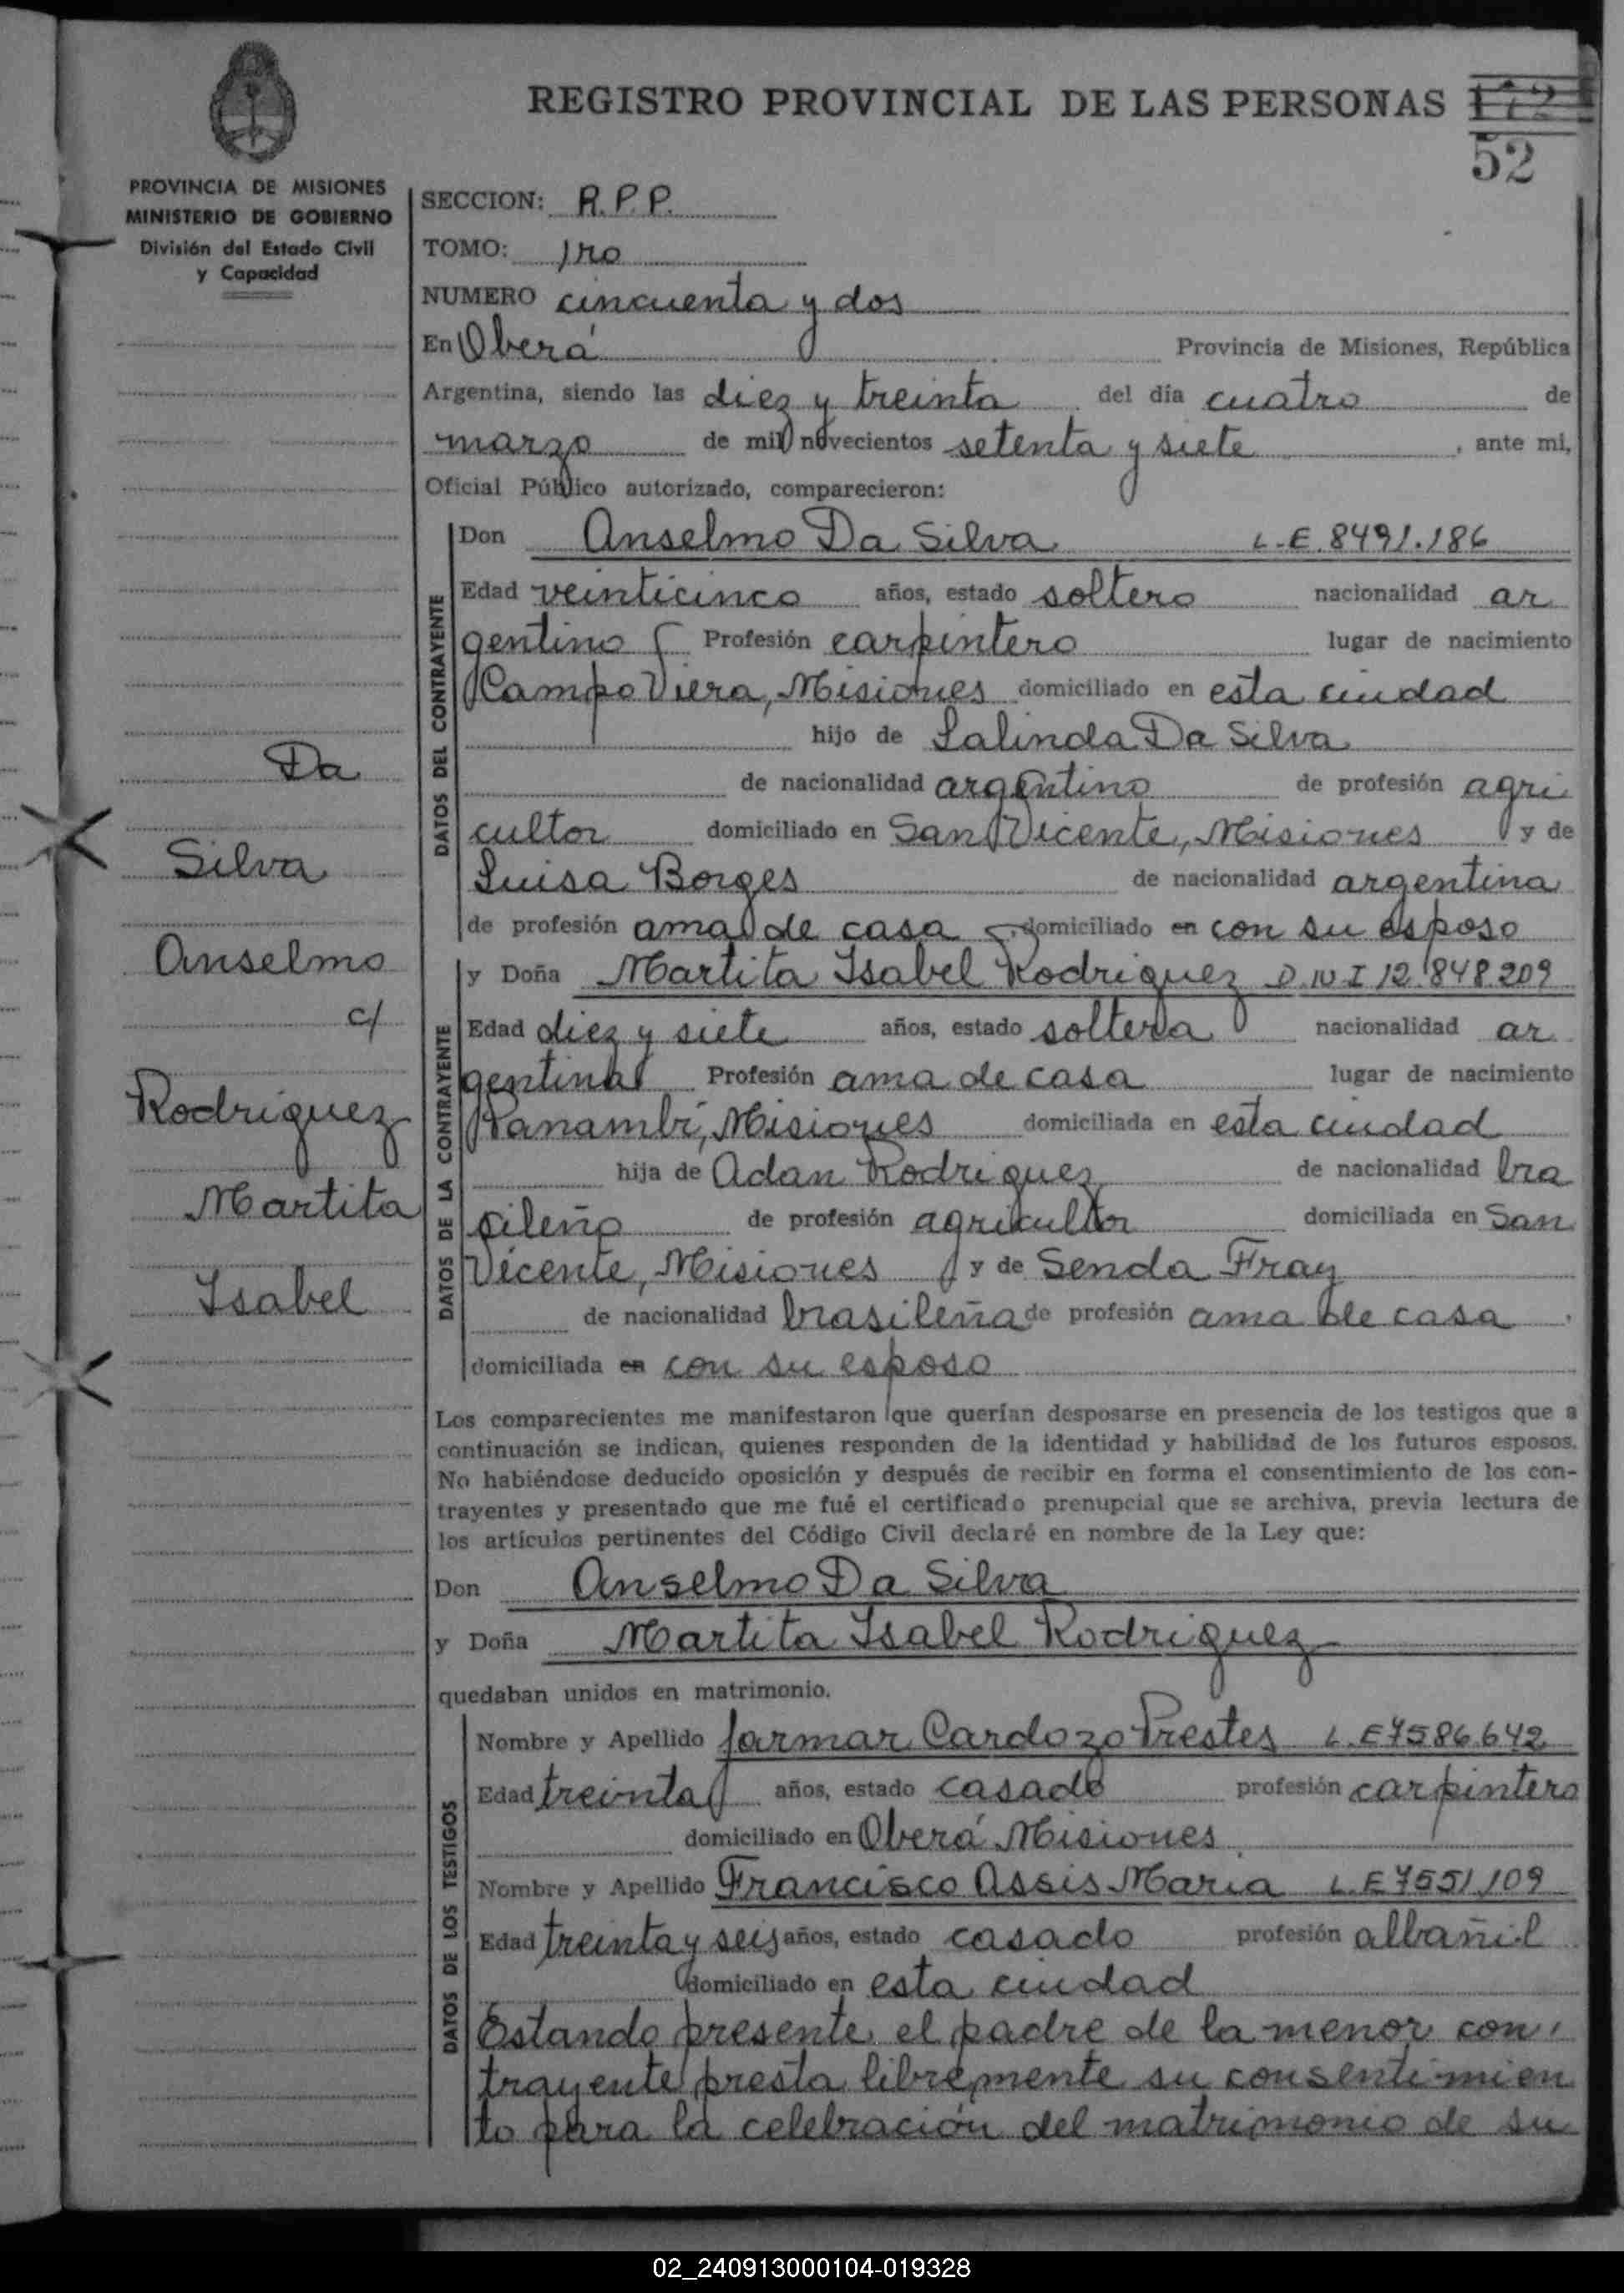 REGISTRO PROVINCIAL DE LAS PERSONAS
172
52
PROVINCIA DE MISIONES
MINISTERIO DE GOBIERNO
División del Estado Civil
y Capacidad
SECCION: R.P.P.
TOMO: 1ro
NUMERO cincuenta y dos
En Oberá Provincia de Misiones, República
Argentina, siendo las diez y treinta del día cuatro de
marzo de mil novecientos setenta y siete, ante mi,
Oficial Público autorizado, comparecieron:
DATOS DEL CONTRAYENTE
Don Anselmo Da Silva L.E. 8491.186
Edad veinticinco años, estado soltero nacionalidad ar
gentino Profesión carpintero lugar de nacimiento
Campo Viera, Misiones domiciliado en esta ciudad
hijo de Salinda Da Silva
de nacionalidad argentino de profesión agri
cultor domiciliado en San Vicente, Misiones y de
Luisa Borges de nacionalidad argentina
de profesión ama de casa domiciliado en con su esposo
DATOS DE LA CONTRAYENTE
y Doña Martita Isabel Rodriguez D.N.I 12.848.209
Edad diez y siete años, estado soltera nacionalidad ar
gentina Profesión ama de casa lugar de nacimiento
Panambí, Misiones domiciliada en esta ciudad
hija de Adan Rodriguez de nacionalidad bra
sileño de profesión agricultor domiciliada en San
Vicente, Misiones y de Senda Fray
de nacionalidad brasileña de profesión ama de casa.
domiciliada en con su esposo
Da
Silva
Anselmo
c/
Rodriguez
Martita
Isabel
Los comparecientes me manifestaron que querían desposarse en presencia de los testigos que a
continuación se indican, quienes responden de la identidad y habilidad de los futuros esposos.
No habiéndose deducido oposición y después de recibir en forma el consentimiento de los con-
trayentes y presentado que me fué el certificado prenupcial que se archiva, previa lectura de
los artículos pertinentes del Código Civil declaré en nombre de la Ley que:
Don Anselmo Da Silva
y Doña Martita Isabel Rodriguez
quedaban unidos en matrimonio.
DATOS DE LOS TESTIGOS
Nombre y Apellido Jarmar Cardozo Prestes L.E 7586.642
Edad treinta años, estado casado profesión carpintero
domiciliado en Oberá Misiones
Nombre y Apellido Francisco Assis Maria L.E 7551109
Edad treinta y seis años, estado casado profesión albañil
domiciliado en esta ciudad
Estando presente el padre de la menor con,
trayente presta libremente su consentimien
to para la celebración del matrimonio de su
02_240913000104-019328